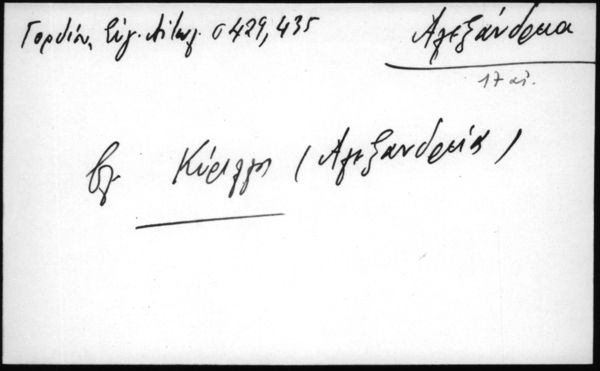 Γορδίου, Εὐγ. Αἰτωλ. σ 429, 435
Ἀλεξάνδρεια
17 αἰ.
βλ. Κύριλλος (Ἀλεξανδρείας)